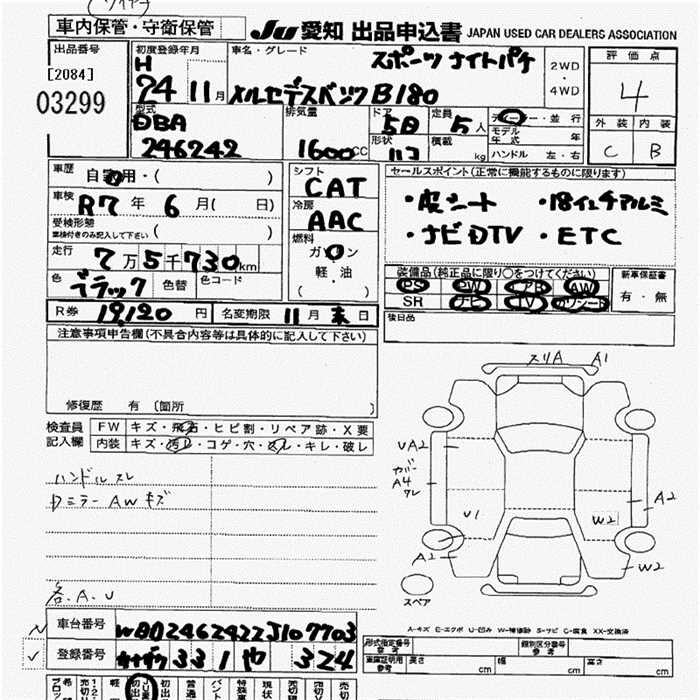 ワイヤナ
車内保管・守衛保管
JU 愛知 出品申込書 JAPAN USED CAR DEALERS ASSOCIATION
出品番号
[2084]
03299
初度登録年月
H
24 11月
車名・グレード
スポーツ ナイトパケ
メルセデスベンツ B180
2WD
・
4WD
評価点
4
外装 内装
C B
型式
DBA
246242
排気量
1600CC
ドア
5D
定員
5人
形状
積載
kg
ディーラー・並行
モデル
年式 年
ハンドル 左・右
車歴
自家用・( )
車検
R7年 6月( 日)
受検形態
車検付きのみ記入して下さい
( )
走行
7万5千730km
色
ブラック
色替
色コード
R券 19,120円
名変期限 11月末日
シフト
CAT
冷房
AAC
燃料
ガソリン
軽・油
( )
セールスポイント(正常に機能するものに限ります)
・皮シート ・18インチアルミ
・ナビDTV ・ETC
装備品(純正品に限り○をつけてください)
PS PW AB AW
SR ナビ TV カワシート
新車保証書
有・無
後日品
注意事項申告欄(不具合内容等は具体的に記入して下さい)
修復歴 有 〔箇所 〕
検査員
記入欄
FW キズ・飛石・ヒビ割・リペア跡・X要
内装 キズ・汚レ・コゲ・穴・スレ・キレ・破レ
ハンドルスレ
DミラーAWキズ
各.A.U
スリA A1
UA2
カバー
A4
ワレ
U1
A2
W2
A2
W2
スペア
A-キズ E-エクボ U-凹み W-補修跡 S-サビ C-腐食 XX-交換済
車台番号 WDD2462422J107703
登録番号 331 や 324
型式指定番号
参考
類別区分番号
参考
車庫証明用
参考
長さ cm 幅 cm 高さ cm